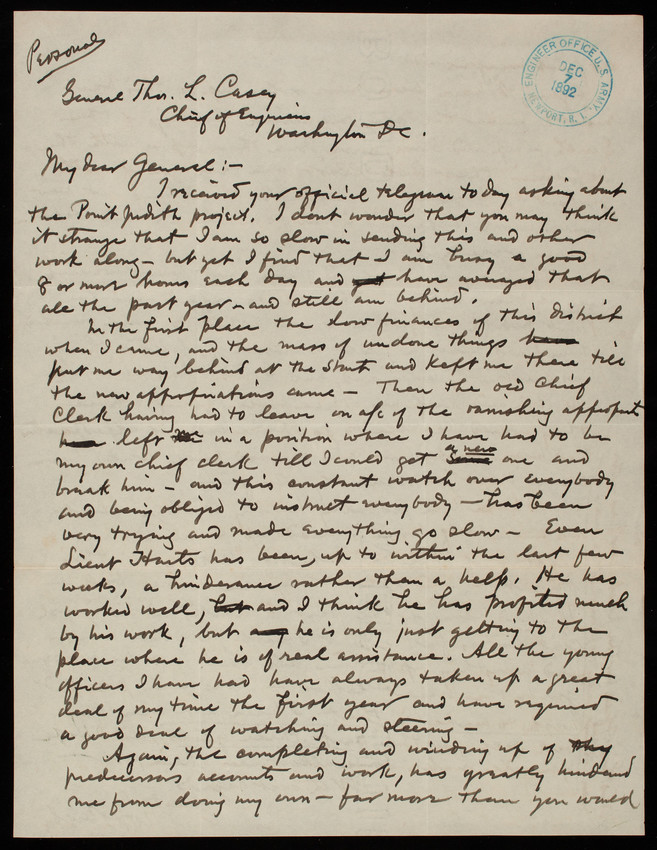 Personal
ENGINEER OFFICE U.S. ARMY.
DEC
7
1892
NEWPORT, R. I.
General Thos. L. Casey
Chief of Engineers
Washington DC.
My dear General:-
I received your official telegram to day asking about
the Point Judith project. I dont wonder that you may think
it strange that I am so slow in sending this and other
work along - but yet I find that I am busy a good
8 or more hours each day and have averaged that
all the past year - and still am behind.
In the first place the low finances of this district
when I came, and the mass of undone things
put me way behind at the start and kept me there till
the new appropriations came - Then the old Chief
Clerk having had to leave on a/c of the vanishing appropriat
left me in a position where I have had to be
my own chief clerk till I could get a new one and
break him - and this constant watch over everybody
and being obliged to instruct everybody - has been
very trying and made everything go slow - Even
Lieut Harts has been, up to within the last few
weeks, a hinderance rather than a help. He has
worked well, and I think he has profited much
by his work, but he is only just getting to the
place where he is of real assistance. All the young
officers I have had have always taken up a great
deal of my time the first year and have required
a good deal of watching and steering -
Again, the completing and winding up of my
predecessors accounts and work, has greatly hindered
me from doing my own - far more than you would